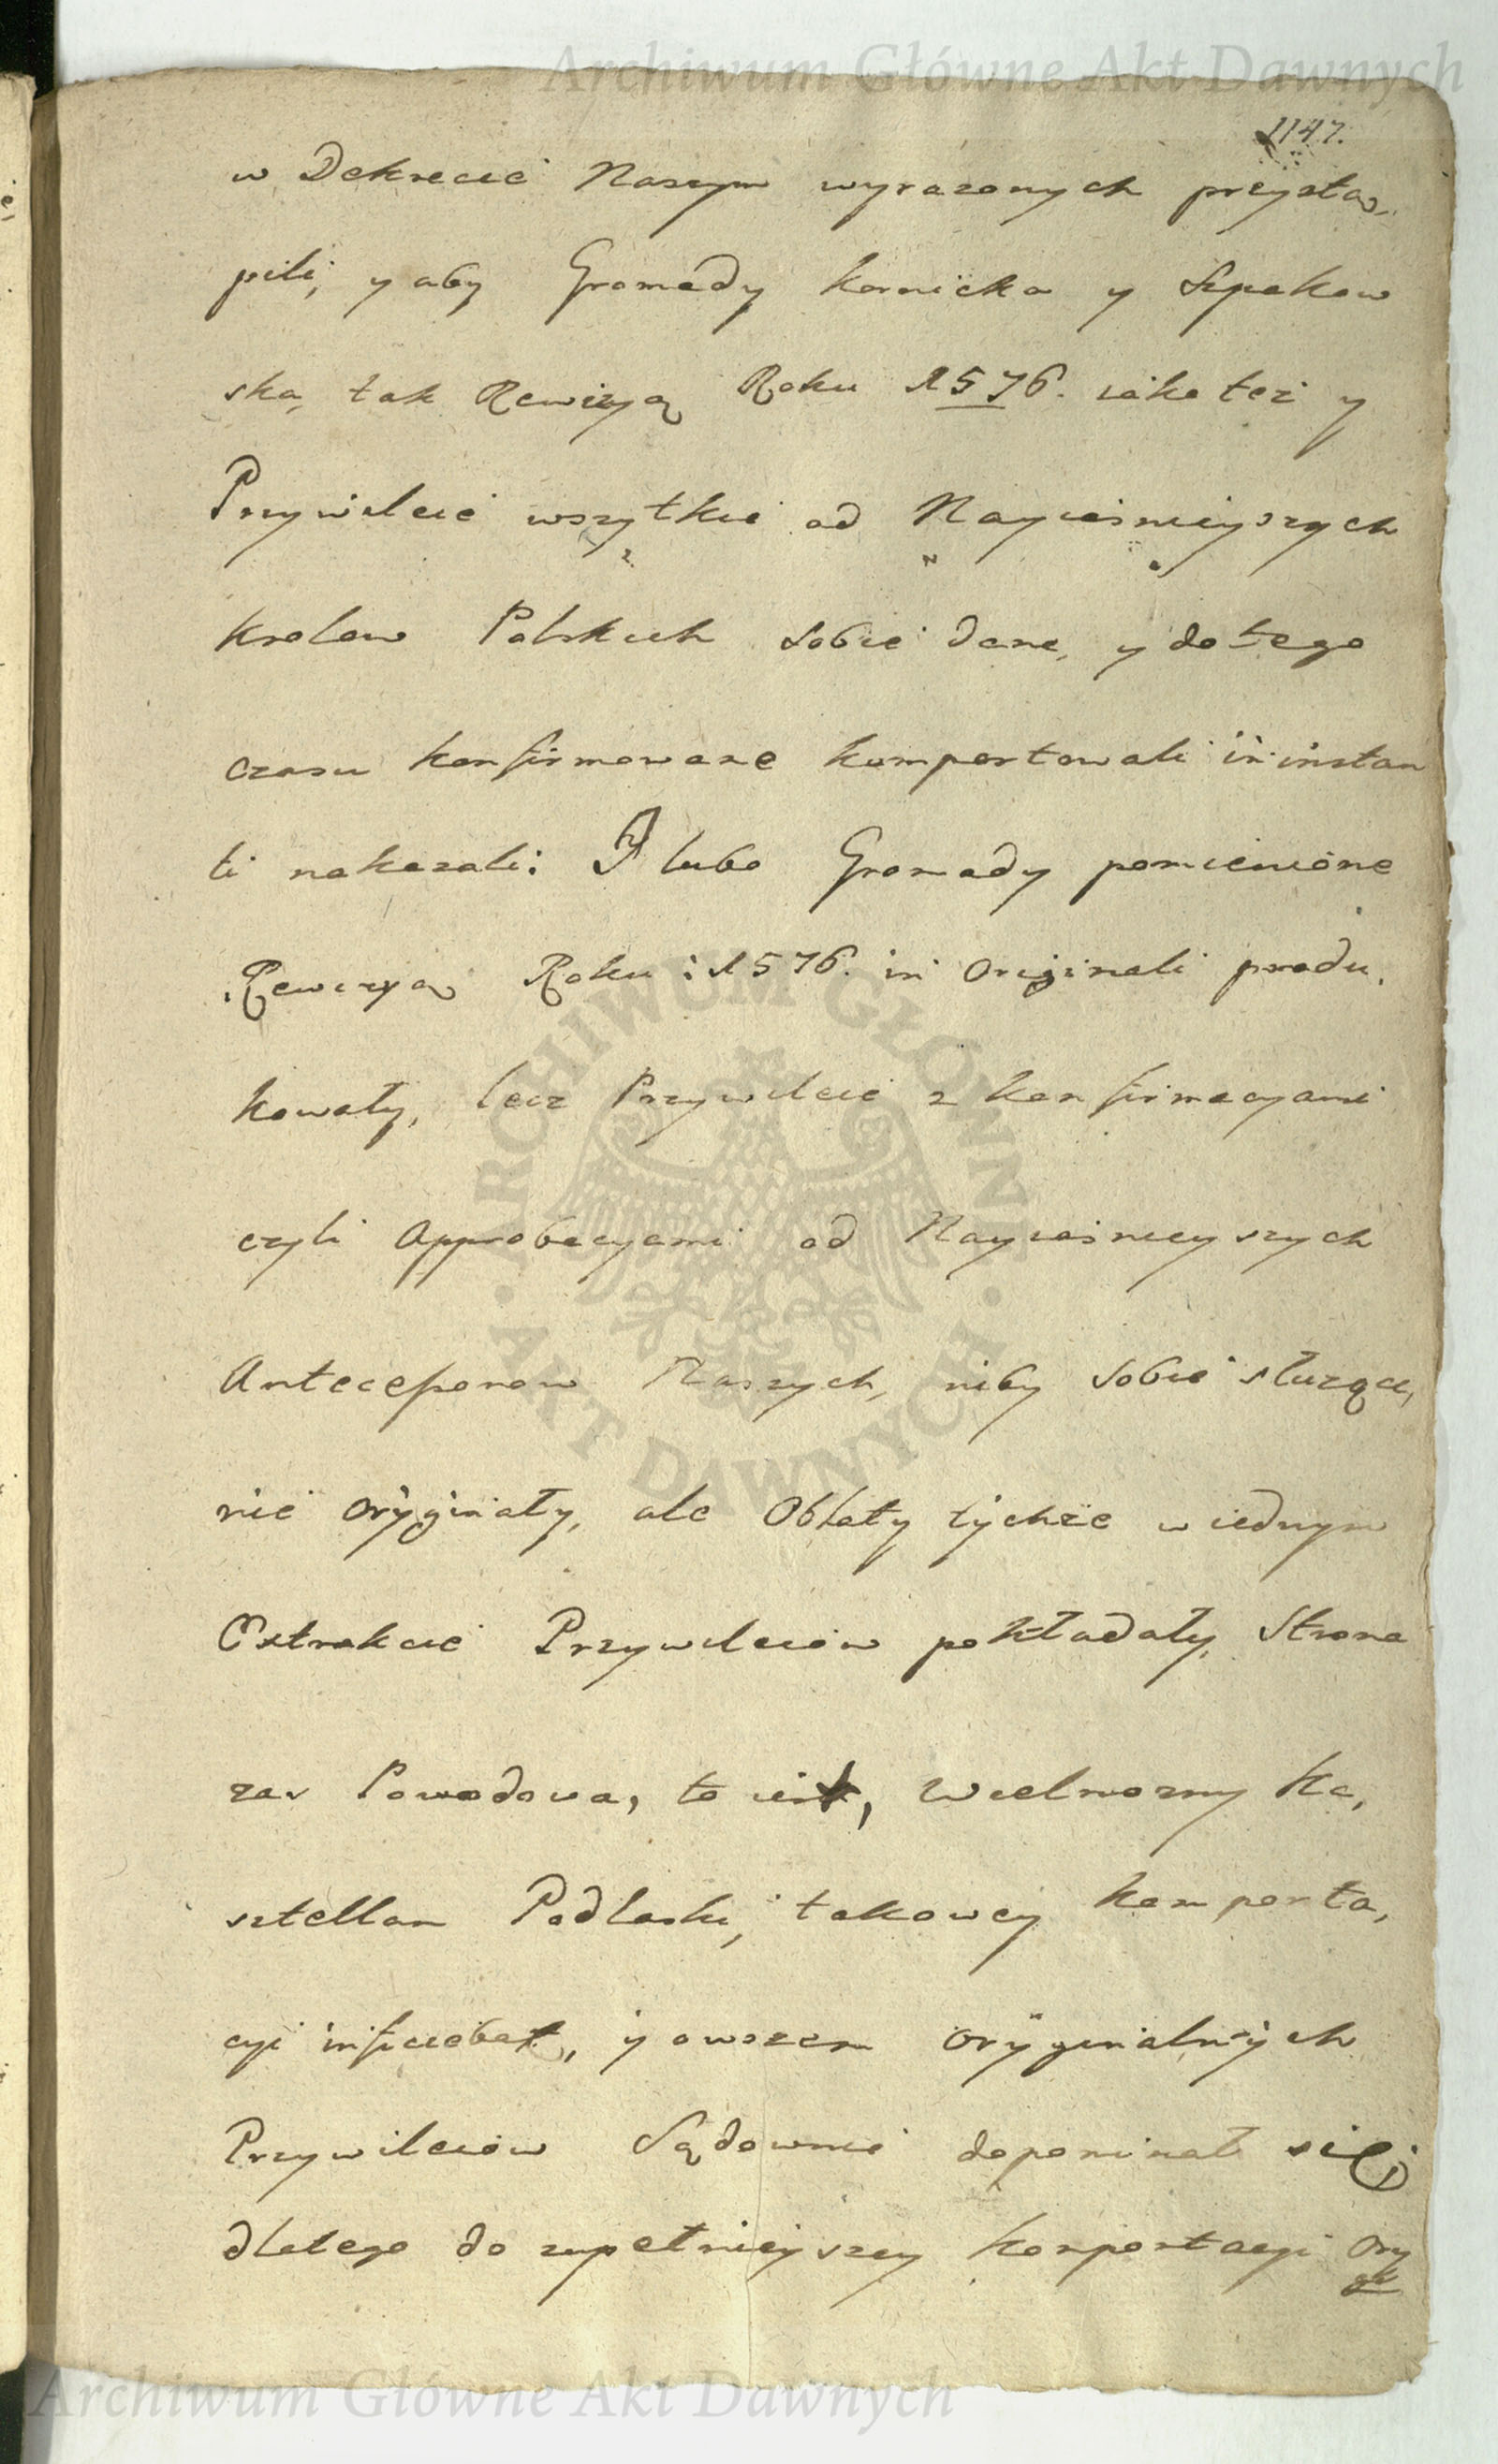 Archiwum Główne Akt Dawnych
1147.
w Dekrecie Naszym wyrazonych przystą,
pili, y aby Gromady Kornicka y Szpakow
ska, tak Rewizyą Roku 1576. iako też y
Przywileie wszytkie od Nayiasnieyszych
Krolow Polskich sobie dane, y do tego
czasu konfirmowane komportowali in instan
ti nakazali: I lubo Gromady pomienione
Rewizyą Roku: 1576. in Originali produ,
kowały, lecz Przywileie z konfirmacyami
czyli Approbacyami od Nayiasnieyszych
Antecessorow Naszych, niby sobie służące,
nie oryginały, ale Oblaty tychże w iednym
Extrakcie Przywileiow pokładały, Strona
zas Powodowa, to iest, Wielmozny Ka,
sztellan Podlaski, takowey komporta,
cyi inficiebat, y owszem oryginalnych
Przywileiow Sądownie dopominał się;
dlatego do zupełnieyszey komportacyi Ory
gi
ARCHIWUM GŁÓWNE AKT DAWNYCH
Archiwum Główne Akt Dawnych